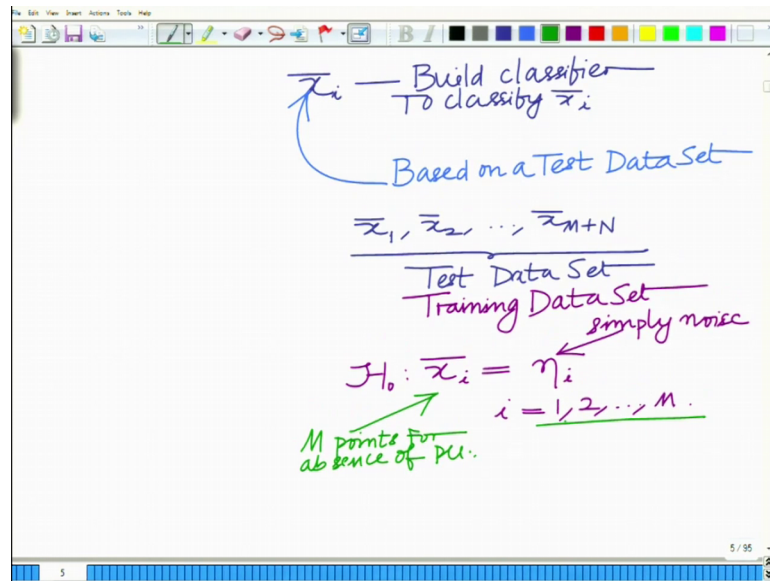 File Edit View Insert Actions Tools Help
B I
x̄i — Build classifier
To classify x̄i
Based on a Test Data Set
x̄1, x̄2, ..., x̄M+N
Test Data Set
Training Data Set
simply noise
H0 : x̄i = ηi
i = 1, 2, .., M.
M points for
absence of PU.
5 / 95
5